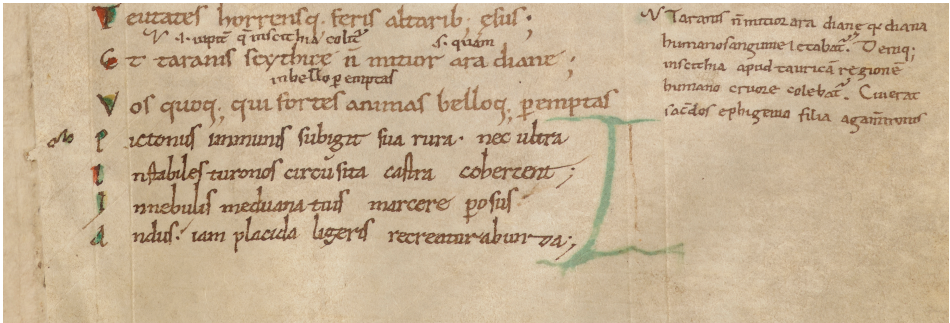 Teutates horrensq; feris altarib; esus;
.i. iupiter q̄ in scithia colit̄
s. quam
Et taranis scythicę n̄ mitior ara diane;
in bello ꝑemptas
Vos quoq; qui fortes animas belloq; ꝑemptas
Pictonis inmunis subigit sua rura. nec ultra
Instabiles turonos circūsita castra cohercent;
In nebulis meduana tuis marcere ꝑosus
Andus. iam placida ligeris recreatur ab unda;
Taranis n̄ mitior ara dianę q; diana
humano sanguine letabat̄. Deniq;
in scithia apud tauricā regionē
humano cruore colebat̄. Cui erat
sac̄dos ephigenia filia agam̄nonis